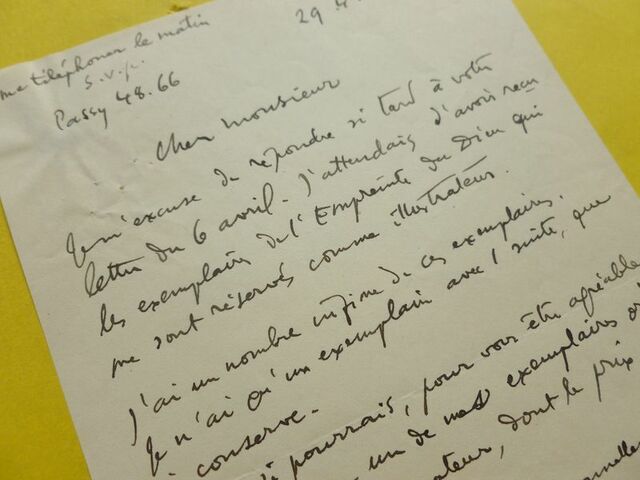 me téléphoner le matin
s.v.p.
Passy 48.66
29 4.
Cher Monsieur
Je m'excuse de répondre si tard à votre
lettre du 6 avril. J'attendais d'avoir reçu
les exemplaires de l'Empreinte du Dieu qui
me sont réservés comme illustrateur.
J'ai un nombre infime de ces exemplaires.
Je n'ai qu'un exemplaire avec 1 suite, que
je conserve.
je pourrais, pour vous être agréable
un de mes exemplaires
dont le prix